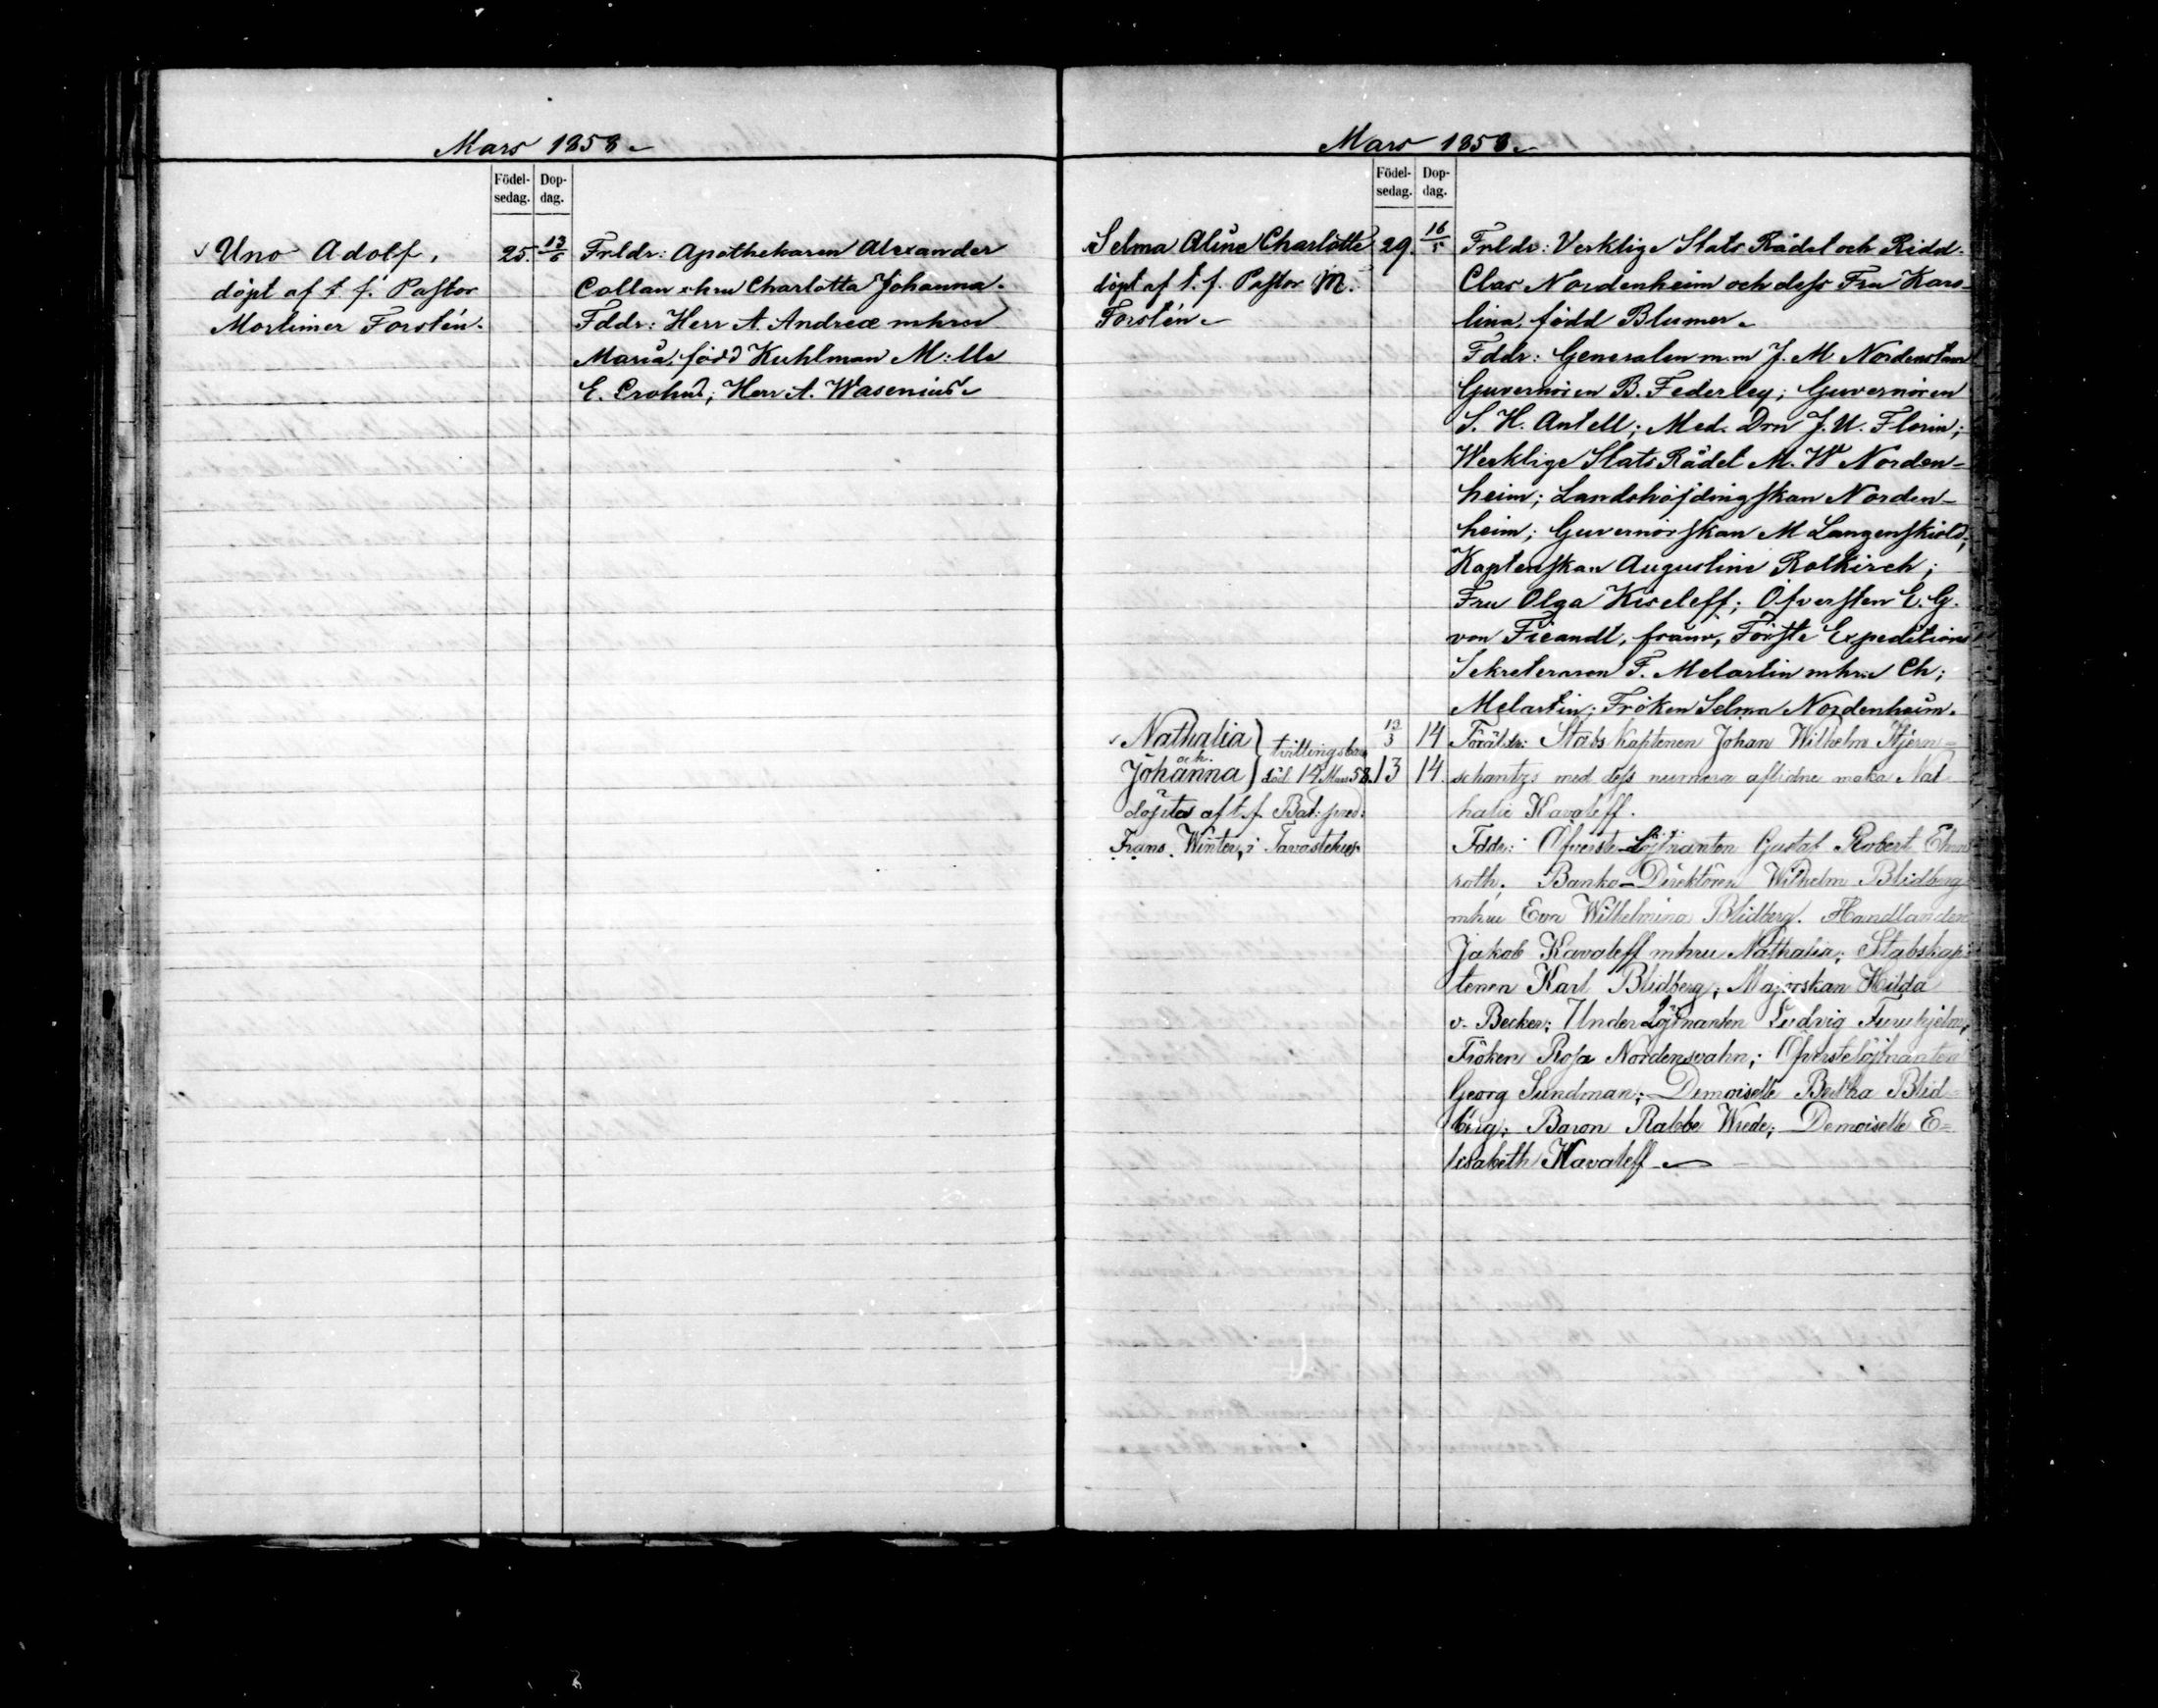 Mars 1858.
Födel-
sedag.
Dop-
dag.
Uno Adolf,
döpt af t. f. Pastor
Mortimer Forstén.
25.
13/6
Frldr: Apothekaren Alexander
Collan o hru Charlotta Johanna.
Fddr: Herr A. Andreæ mhru
Maria, född Kuhlman M:lle
E. Crohns; Herr A. Wasenius
Mars 1858.
Födel-
sedag.
Dop-
dag.
Selma Aline Charlotte
döpt af t. f. Pastor M.
Forstén
29.
16/5
Frldr: Verklige Stats Rådet och Ridd.
Clas Nordenheim och dess Fru Karo-
lina, född Blumer.
Fddr: Generalen m.m J. M. Nordenstam
Guvernören B. Federley; Guvernören
S. H. Antell; Med. Drn J. U. Florin;
Werklige Stats Rådet M. W Norden-
heim; Landshöfdingskan Norden-
heim; Guvernörskan M Langenskiöld;
Kaptenskan Augustine Rotkirch;
Fru Olga Kiseleff; Öfversten E. G.
von Fieandt, Förste Expeditions
Sekreteraren F. Melartin mhru Ch;
Melartin; Fröken Selma Nordenheim.
Nathalia
och
Johanna
tvillingsbarn
död. 14 Mars 58.
döptes af t. f. Bat: pred:
Frans Winter, i Tavastehus
13/3 14
13 14.
Föräldr: Stabs Kaptenen Johan Wilhelm Stjern=
schantzs med dess numera aflidne maka Nat
halie Kavaleff.
Fddr: Öfverste-Löjtnanten Gustaf Robert Ehrn
roth; Banko-Direktören Wilhelm Blidberg
mhru Eva Wilhelmina Blidberg. Handlanden
Jakob Kavaleff mhru Nathalia; Stabskap=
tenen Karl Blidberg; Majorskan Hilda
v. Becker; Under Löjtnanten Ludvig Furuhjelm,
Fröken Rosa Nordensvahn; Öfverstelöjtnanten
Georg Sundman; Demoiselle Bertha Blid=
berg; Baron Rabbe Wrede; Demoiselle E=
lisabeth Kavaleff